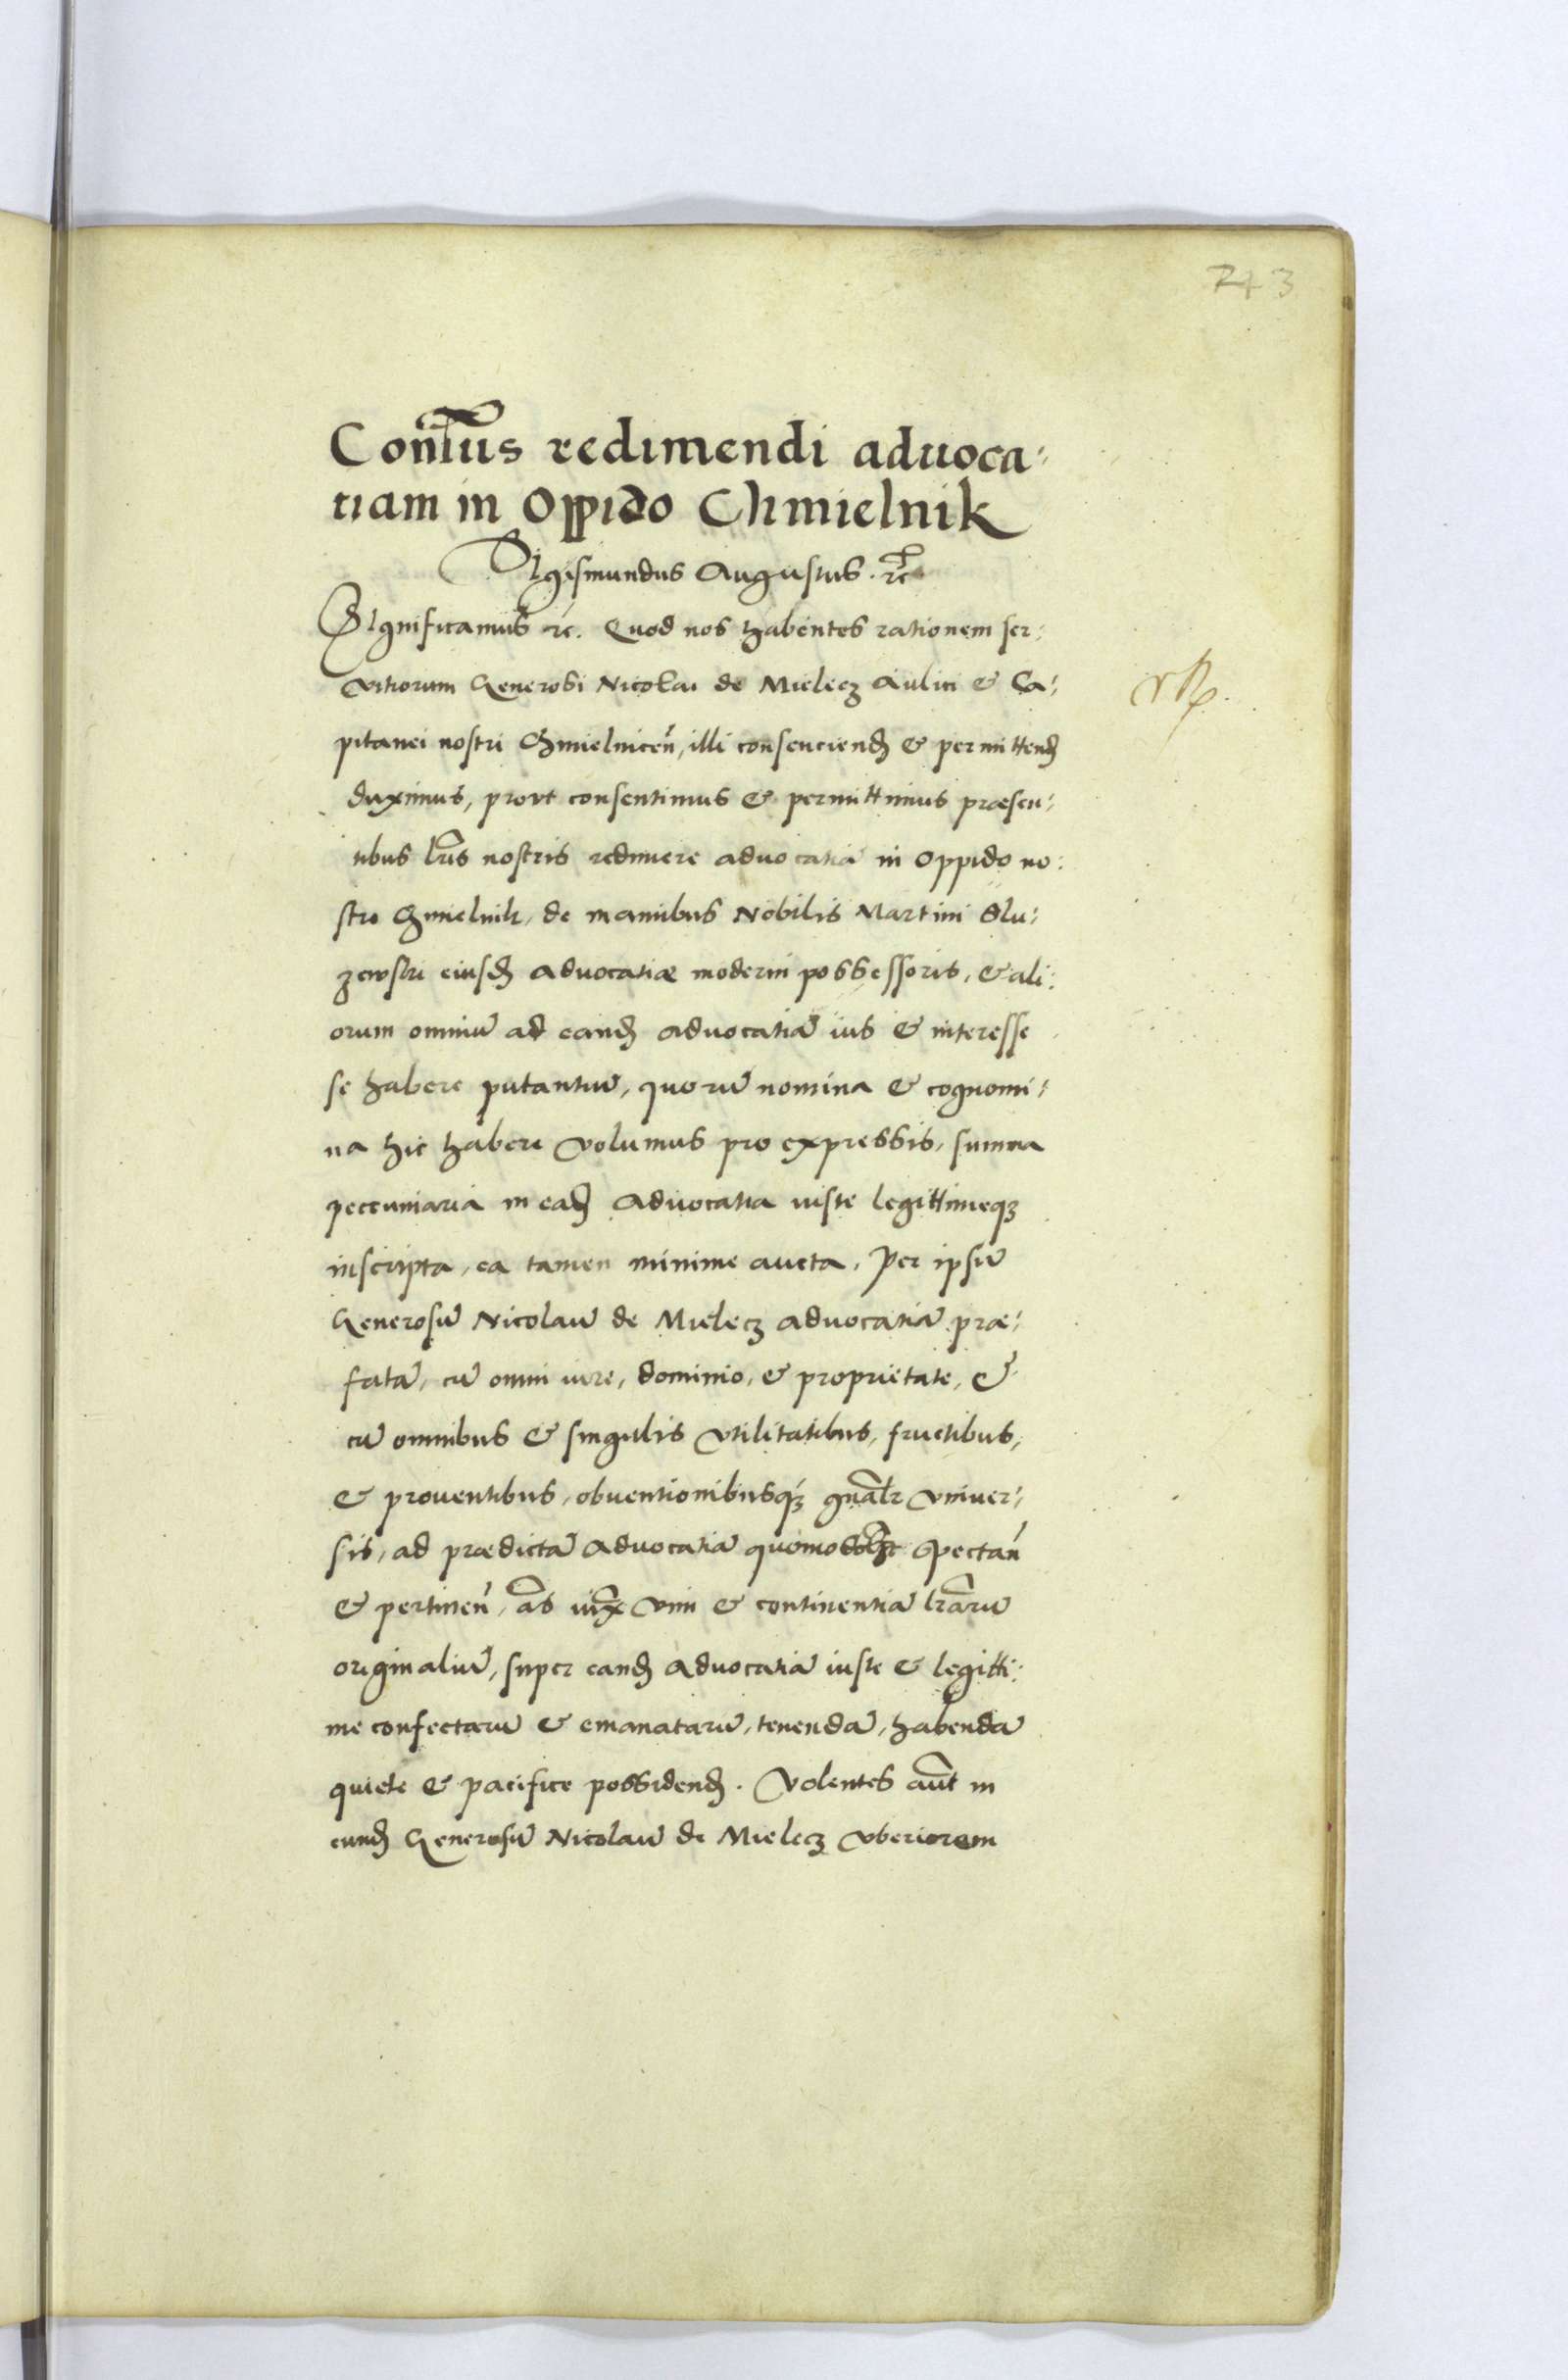 243
Con̄sus redimendi aduoca-
tiam in Oppido Chmielnik
Sigismundus Augustus. rc̄
Significamus rc̄. Quod nos habentes rationem ser-
vitiorum Generosi Nicolai de Mielecz Aulici & Ca-
pitanei nostri Chmielnicen̄, illi consenciend̄ & permittend̄
duximus, provt consentimus & permittimus præsen-
tibus l̄ris nostris redimere aduocatiā in oppido no-
stro Chmielnik, de manibus Nobilis Martini Slu-
zewski eiusd̄ aduocatiæ moderni possessoris, & ali-
orum omniū ad eand̄ aduocatiā ius & interesse
se habere putantiū, quorū nomina & cognomi-
na hic habere volumus pro expressis, summa
peccuniaria in ead̄ aduocatia iuste legittimeqꝫ
inscripta, ea tamen minime aucta. Per ipsū
Generosū Nicolaū de Mielecz aduocatiā præ-
fatā, cū omni iure, dominio, & proprietate, &
cū omnibus & singulis vtilitatibus, fructibus,
& prouentibus, obuentionibusqꝫ gn̄alr vniuer-
sis, ad prædictā aduocatiā quomodol̄t spectan̄
& pertinen̄, ac iux̄ vim & continentiā l̄rarū
originaliū, super eand̄ aduocatiā iuste & legitti-
me confectarū & emanatarū, tenendā, habendā
quiete & pacifice possidend̄. Volentes aūt in
eund̄ Generosū Nicolaū de Mielecz vberiorem